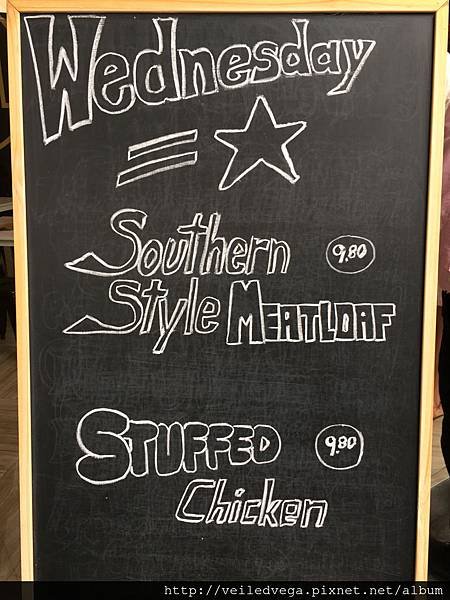 Wednesday
Southern 9.80
Style MEATLOAF
STUFFED 9.80
Chicken
http://veiledvega.pixnet.net/album